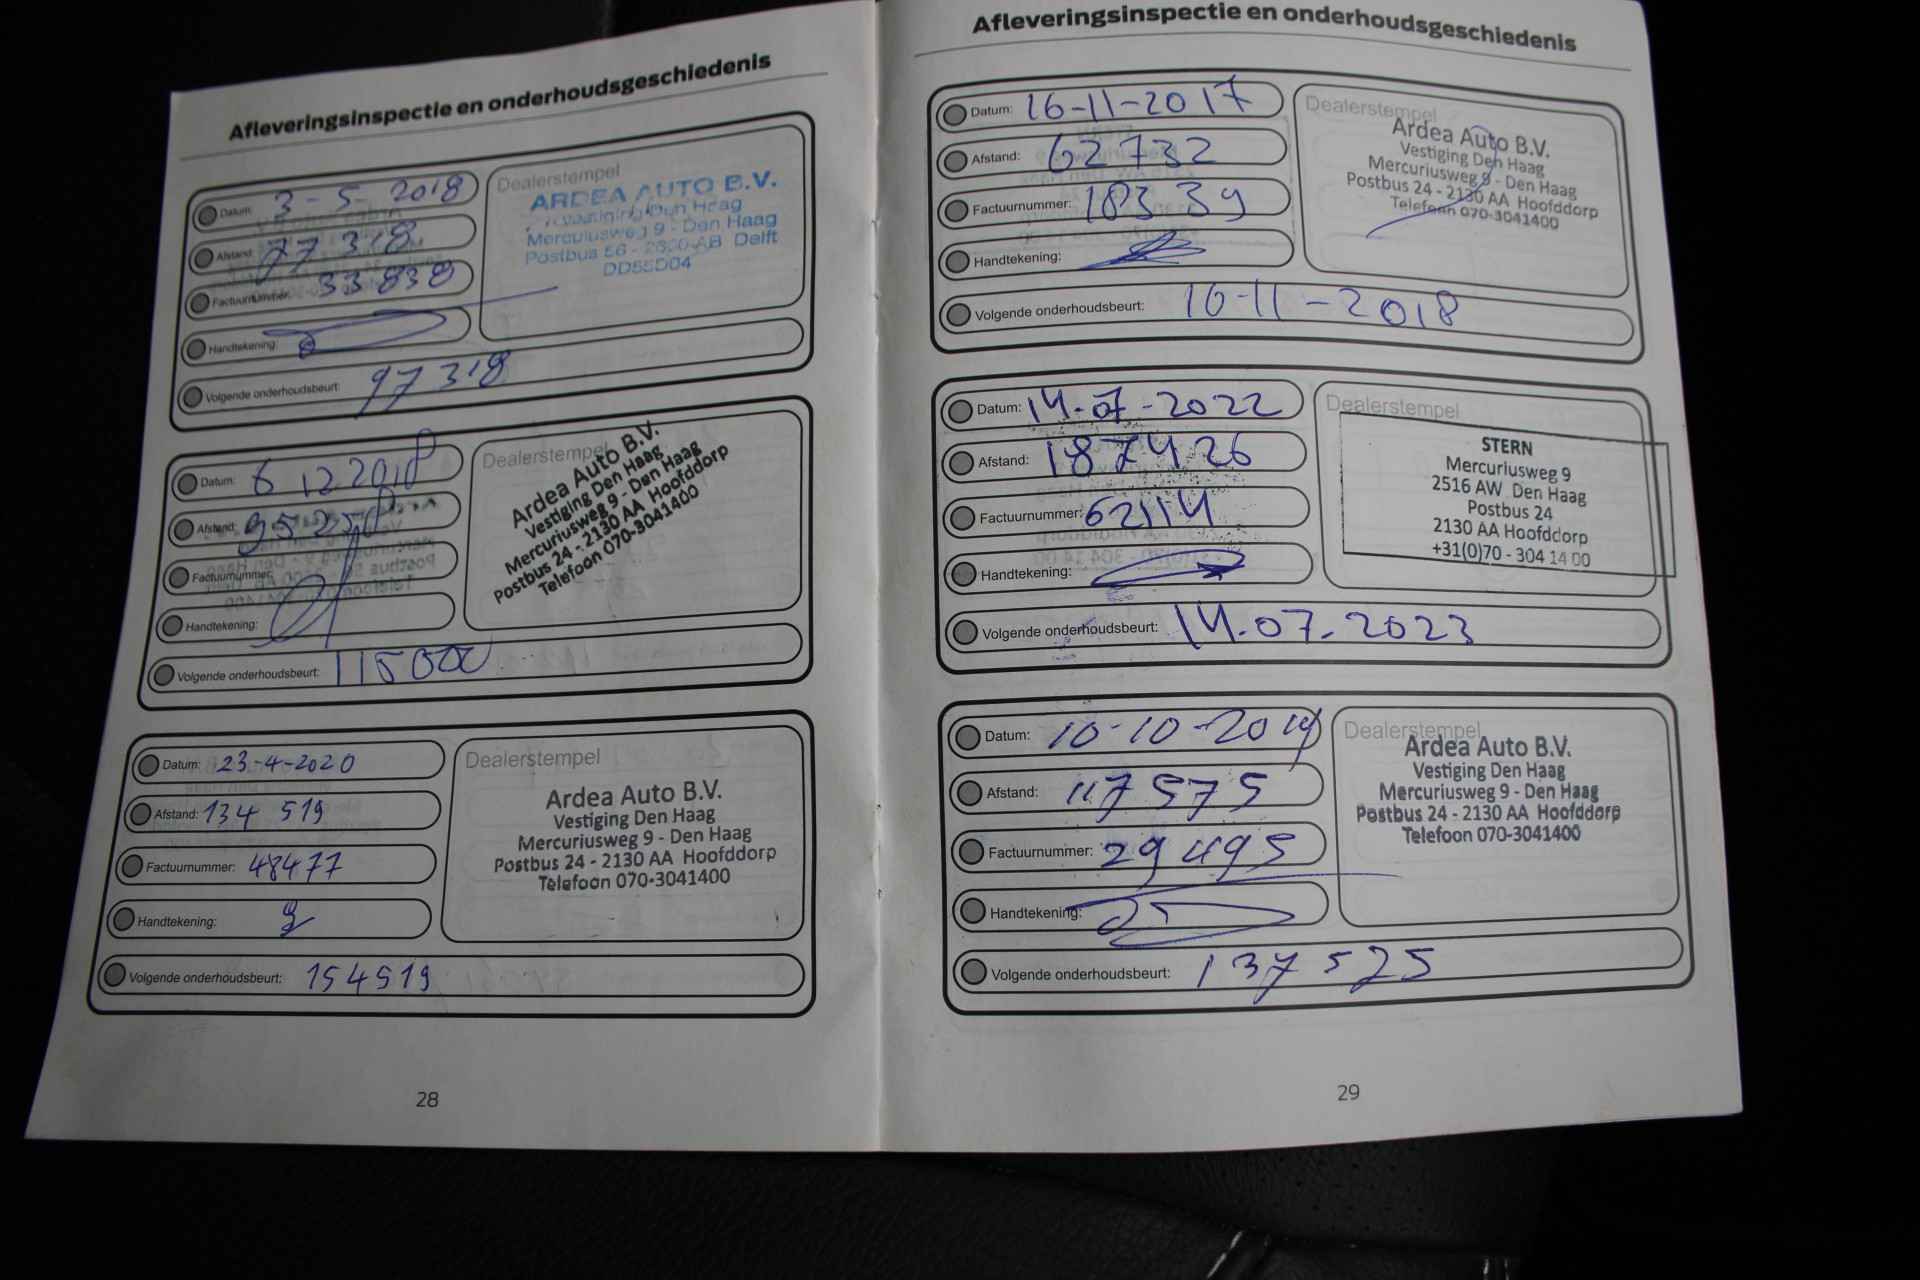 Afleveringsinspectie en onderhoudsgeschiedenis
Datum: 3-5-2018
Afstand: 77 318
Factuurnummer: 33838
Handtekening:
Volgende onderhoudsbeurt: 97 318
Dealerstempel
ARDEA AUTO B.V.
Vestiging Den Haag
Mercuriusweg 9 - Den Haag
Postbus 56 - 2600 AB Delft
DD55D04
Datum: 6 12 2018
Afstand:
Factuurnummer:
Handtekening:
Volgende onderhoudsbeurt: 115000
Dealerstempel
Ardea Auto B.V.
Vestiging Den Haag
Mercuriusweg 9 - Den Haag
Postbus 24 - 2130 AA Hoofddorp
Telefoon 070-3041400
Datum: 23-4-2020
Afstand: 134 519
Factuurnummer: 48477
Handtekening:
Volgende onderhoudsbeurt: 154519
Dealerstempel
Ardea Auto B.V.
Vestiging Den Haag
Mercuriusweg 9 - Den Haag
Postbus 24 - 2130 AA Hoofddorp
Telefoon 070-3041400
28
Afleveringsinspectie en onderhoudsgeschiedenis
Datum: 16-11-2017
Afstand: 62732
Factuurnummer: 18339
Handtekening:
Volgende onderhoudsbeurt: 16-11-2018
Dealerstempel
Ardea Auto B.V.
Vestiging Den Haag
Mercuriusweg 9 - Den Haag
Postbus 24 - 2130 AA Hoofddorp
Telefoon 070-3041400
Datum: 14.07-2022
Afstand: 187426
Factuurnummer: 62114
Handtekening:
Volgende onderhoudsbeurt: 14.07.2023
Dealerstempel
STERN
Mercuriusweg 9
2516 AW Den Haag
Postbus 24
2130 AA Hoofddorp
+31(0)70 - 304 14 00
Datum: 10-10-2019
Afstand: 117575
Factuurnummer: 29495
Handtekening:
Volgende onderhoudsbeurt: 137 575
Dealerstempel
Ardea Auto B.V.
Vestiging Den Haag
Mercuriusweg 9 - Den Haag
Postbus 24 - 2130 AA Hoofddorp
Telefoon 070-3041400
29